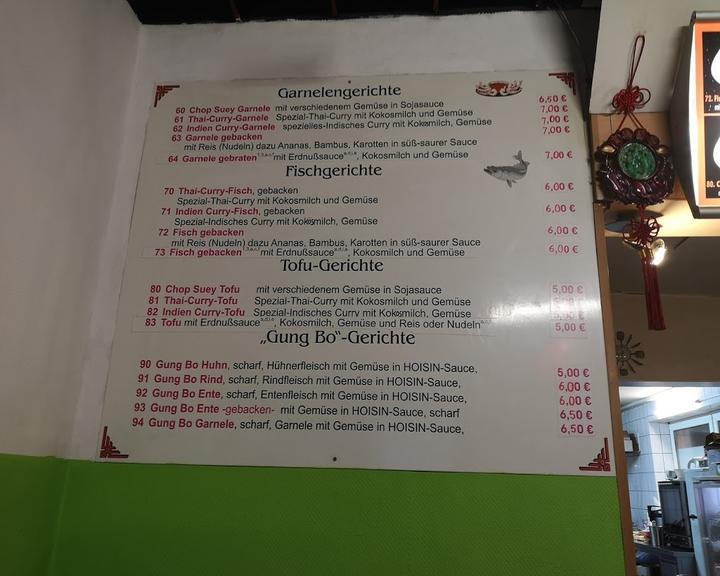 Garnelengerichte
60 Chop Suey Garnele mit verschiedenem Gemüse in Sojasauce 6,50 €
61 Thai-Curry-Garnele Spezial-Thai-Curry mit Kokosmilch und Gemüse 7,00 €
62 Indien Curry-Garnele spezielles-Indisches Curry mit Kokosmilch, Gemüse 7,00 €
63 Garnele gebacken 7,00 €
mit Reis (Nudeln) dazu Ananas, Bambus, Karotten in süß-saurer Sauce
64 Garnele gebraten mit Erdnußsauce, Kokosmilch und Gemüse 7,00 €
Fischgerichte
70 Thai-Curry-Fisch, gebacken 6,00 €
Spezial-Thai-Curry mit Kokosmilch und Gemüse
71 Indien Curry-Fisch, gebacken 6,00 €
Spezial-Indisches Curry mit Kokosmilch und Gemüse
72 Fisch gebacken 6,00 €
mit Reis (Nudeln) dazu Ananas, Bambus, Karotten in süß-saurer Sauce
73 Fisch gebacken mit Erdnußsauce, Kokosmilch und Gemüse 6,00 €
Tofu-Gerichte
80 Chop Suey Tofu mit verschiedenem Gemüse in Sojasauce 5,00 €
81 Thai-Curry-Tofu Spezial-Thai-Curry mit Kokosmilch und Gemüse
82 Indien Curry-Tofu Spezial-Indisches Curry mit Kokosmilch, Gemüse
83 Tofu mit Erdnußsauce, Kokosmilch, Gemüse und Reis oder Nudeln 5,00 €
„Gung Bo“-Gerichte
90 Gung Bo Huhn, scharf, Hühnerfleisch mit Gemüse in HOISIN-Sauce, 5,00 €
91 Gung Bo Rind, scharf, Rindfleisch mit Gemüse in HOISIN-Sauce, 6,00 €
92 Gung Bo Ente, scharf, Entenfleisch mit Gemüse in HOISIN-Sauce, 6,00 €
93 Gung Bo Ente -gebacken- mit Gemüse in HOISIN-Sauce, scharf 6,50 €
94 Gung Bo Garnele, scharf, Garnele mit Gemüse in HOISIN-Sauce, 6,50 €